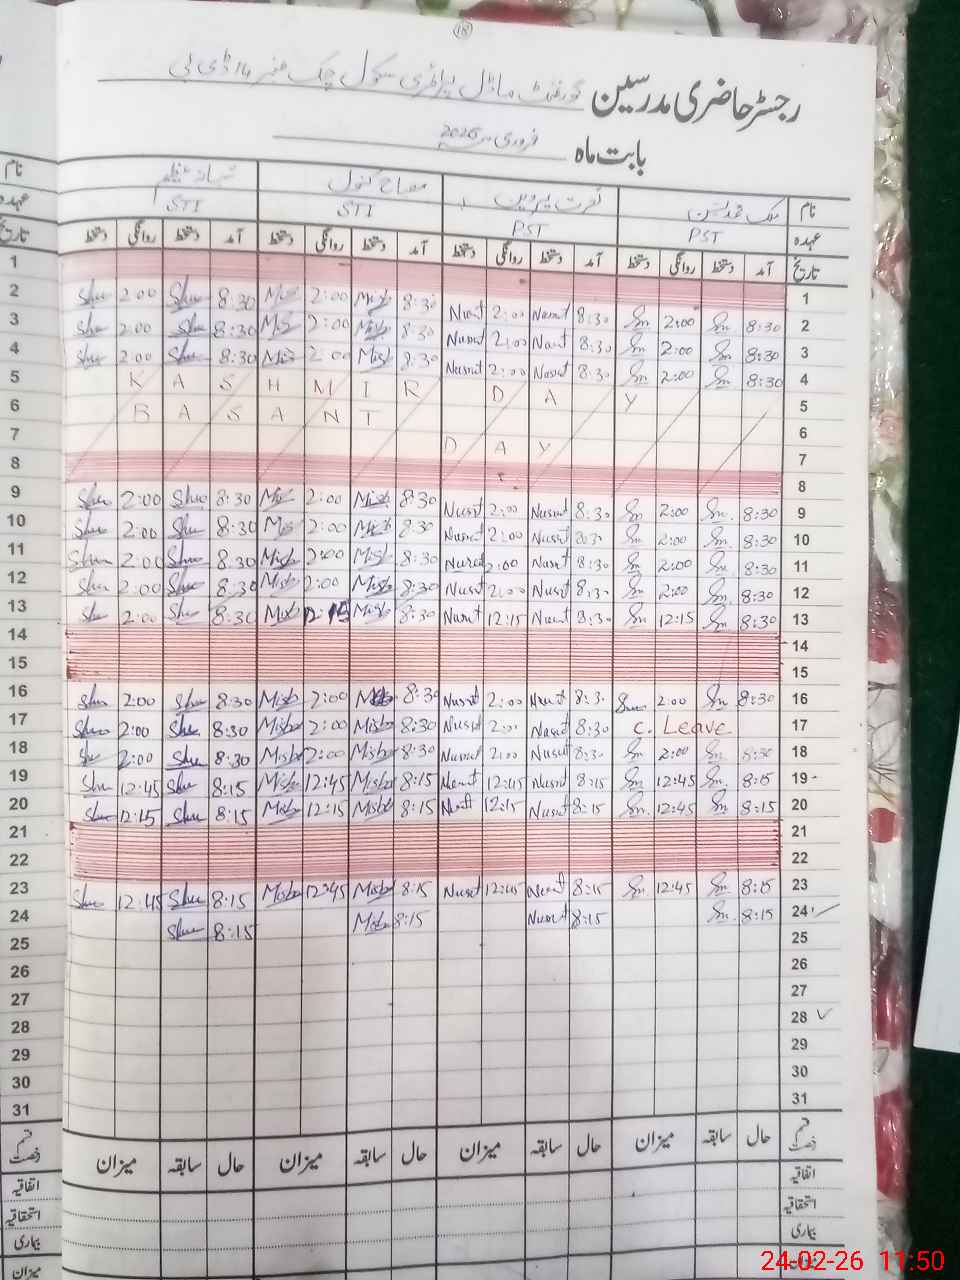 18
رجسٹر حاضری مدرسین گورنمنٹ ماڈل پرائمری سکول چک نمبر 14 ڈی بی
بابت ماہ فروری 2026
نام نصرت پروین مصباح کنول شبانہ عظیم نام
عہدہ PST PST STI STI عہدہ
تاریخ آمد دستخط روانگی دستخط آمد دستخط روانگی دستخط آمد دستخط روانگی دستخط آمد دستخط روانگی دستخط تاریخ
1 1
2 Shu 2:00 Shu 8:30 Mis 2:00 Misb 8:30 Nusrat 2:00 Nusrat 8:30 Sm 2:00 Sm 8:30 2
3 Shu 2:00 Shu 8:30 Mis 2:00 Misb 8:30 Nusrat 2:00 Nusrat 8:30 Sm 2:00 Sm 8:30 3
4 Shu 2:00 Shu 8:30 Mis 2:00 Misb 8:30 Nusrat 2:00 Nusrat 8:30 Sm 2:00 Sm 8:30 4
5 KASHMIR DAY 5
6 BASANT 6
7 DAY 7
8 8
9 Shu 2:00 Shu 8:30 Mis 2:00 Misb 8:30 Nusrat 2:00 Nusrat 8:30 Sm 2:00 Sm. 8:30 9
10 Shu 2:00 Shu 8:30 Mis 2:00 Misb 8:30 Nusrat 2:00 Nusrat 8:30 Sm 2:00 Sm. 8:30 10
11 Shu 2:00 Shu 8:30 Misb 2:00 Misb 8:30 Nusrat 2:00 Nusrat 8:30 Sm 2:00 Sm. 8:30 11
12 Shu 2:00 Shu 8:30 Misb 2:00 Misb 8:30 Nusrat 2:00 Nusrat 8:30 Sm 2:00 Sm. 8:30 12
13 Shu 2:00 Shu 8:30 Misb 12:15 Misb 8:30 Nusrat 12:15 Nusrat 8:30 Sm 12:15 Sm. 8:30 13
14 14
15 15
16 Shu 2:00 Shu 8:30 Misb 2:00 8:30 Nusrat 2:00 Nusrat 8:30 Sm 2:00 Sm 8:30 16
17 Shu 2:00 Shu 8:30 Misb 2:00 Misb 8:30 Nusrat 2:00 Nusrat 8:30 C. Leave 17
18 Shu 2:00 Shu 8:30 Misb 2:00 Misb 8:30 Nusrat 2:00 Nusrat 8:30 Sm 2:00 Sm 8:30 18
19 Shu 12:45 Shu 8:15 Misb 12:45 Misb 8:15 Nusrat 12:45 Nusrat 8:15 Sm 12:45 Sm. 8:15 19
20 Shu 12:15 Shu 8:15 Misb 12:15 Misb 8:15 Nusrat 12:15 Nusrat 8:15 Sm. 12:45 Sm. 8:15 20
21 21
22 22
23 Shu 12:45 Shu 8:15 Misb 12:45 Misb 8:15 Nusrat 12:45 Nusrat 8:15 Sm. 12:45 Sm 8:15 23
24 Shu 8:15 Misb 8:15 Nusrat 8:15 Sm. 8:15 24
25 25
26 26
27 27
28 28
29 29
30 30
31 31
قسم رخصت حال سابقہ میزان حال سابقہ میزان حال سابقہ میزان حال سابقہ میزان قسم رخصت
اتفاقیہ اتفاقیہ
استحقاقیہ استحقاقیہ
بیماری بیماری
میزان میزان
24-02-26 11:50